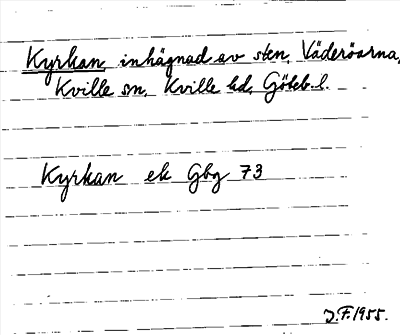 Kyrkan, inhägnad av sten, Väderöarna,
Kville sn, Kville hd, Göteb. l.
Kyrkan ek Gbg 73
J.F. 1955.